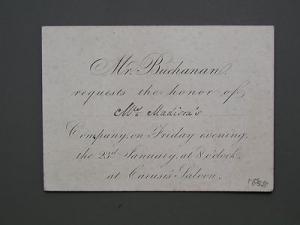 Mr. Buchanan
requests the honor of
Mr. Madira's
Company, on Friday evening,
the 23rd January, at 8 o'clock
at Carusi's Saloon.